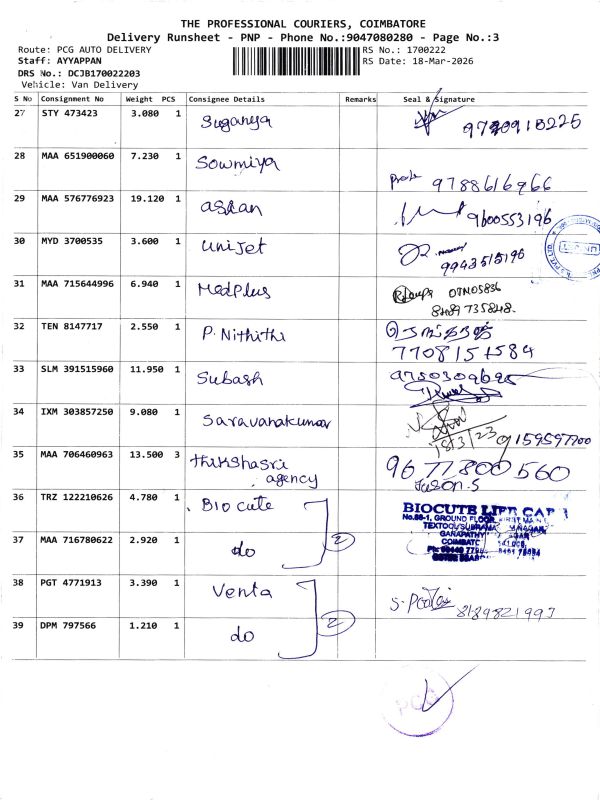 THE PROFESSIONAL COURIERS, COIMBATORE
Delivery Runsheet - PNP - Phone No.:9047080280 - Page No.:3
Route: PCG AUTO DELIVERY
RS No.: 1700222
Staff: AYYAPPAN
RS Date: 18-Mar-2026
DRS No.: DCJB170022203
Vehicle: Van Delivery
S No Consignment No Weight PCS Consignee Details Remarks Seal & Signature
27 STY 473423 3.080 1 Suganya
28 MAA 651900060 7.230 1 Sowmiya 9788616966
29 MAA 576776923 19.120 1 asian 9600553196
30 MYD 3700535 3.600 1 Unijet 9943515196
31 MAA 715644996 6.940 1 MedPlus
8489735848.
32 TEN 8147717 2.550 1 P. Nithithi
7708151584
33 SLM 391515960 11.950 1 Subash
34 IXM 303857250 9.080 1 Saravanakumar
35 MAA 706460963 13.500 3 agency 9677800560
Jason.S
36 TRZ 122210626 4.780 1 Biocute
BIOCUTE LIFE
37 MAA 716780622 2.920 1 do 2
GANAPATHY
38 PGT 4771913 3.390 1 Venta
8189821993
39 DPM 797566 1.210 1 do 2
PCG